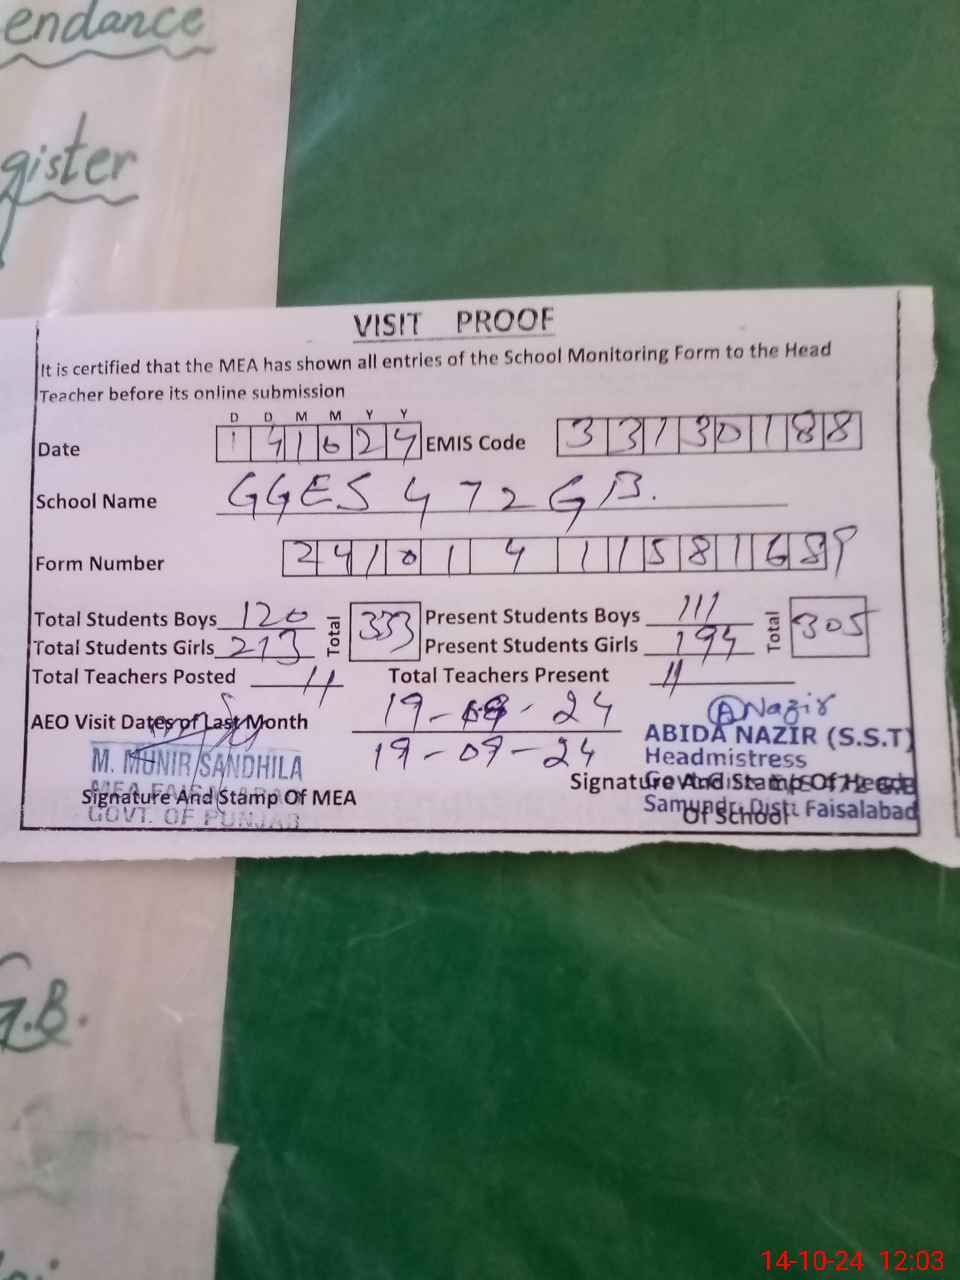 endance
gister
VISIT PROOF
It is certified that the MEA has shown all entries of the School Monitoring Form to the Head
Teacher before its online submission
D D M M Y Y
Date 1 4 1 0 2 4 EMIS Code 3 3 1 3 0 1 8 8
School Name GGES 472 GB.
Form Number 2 4 1 0 1 4 1 1 5 8 1 6 8 9
Total Students Boys 120 Total 333 Present Students Boys 111 Total 305
Total Students Girls 213 Present Students Girls 194
Total Teachers Posted 11 Total Teachers Present 11
AEO Visit Dates of Last Month 19-09-24
19-09-24
A Nazir
M. MUNIR SANDHILA
MEA FAISALABAD
GOVT. OF PUNJAB
Signature And Stamp Of MEA
ABIDA NAZIR (S.S.T)
Headmistress
Samundri Distt Faisalabad
Signature And Stamp Of Head
Of School
G.B.
14-10-24 12:03